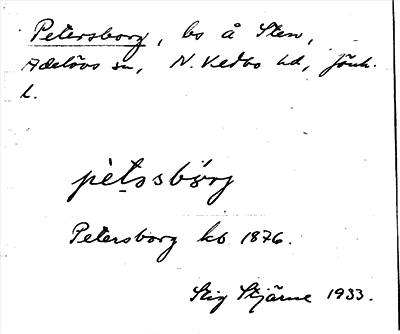 Petersborg, bs å Sten,
Adelövs sn, N. Vedbo hd, Jönk.
l.
pètssbórg
Petersborg kb 1876.
Stig Stjärne 1933.